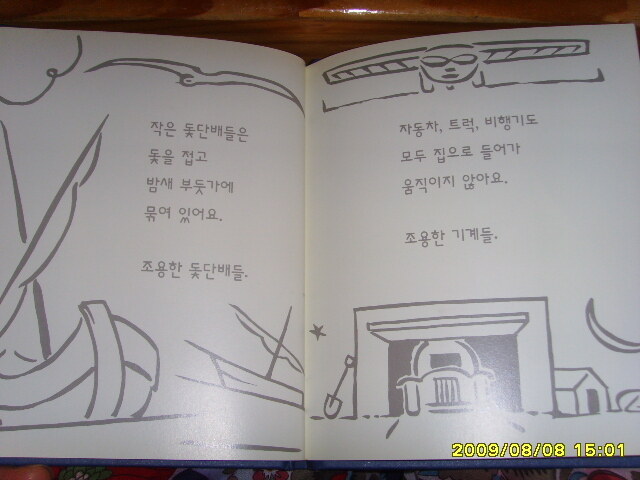 작은 돛단배들은
돛을 접고
밤새 부둣가에
묶여 있어요.
조용한 돛단배들.
자동차, 트럭, 비행기도
모두 집으로 들어가
움직이지 않아요.
조용한 기계들.
2009/08/08 15:01